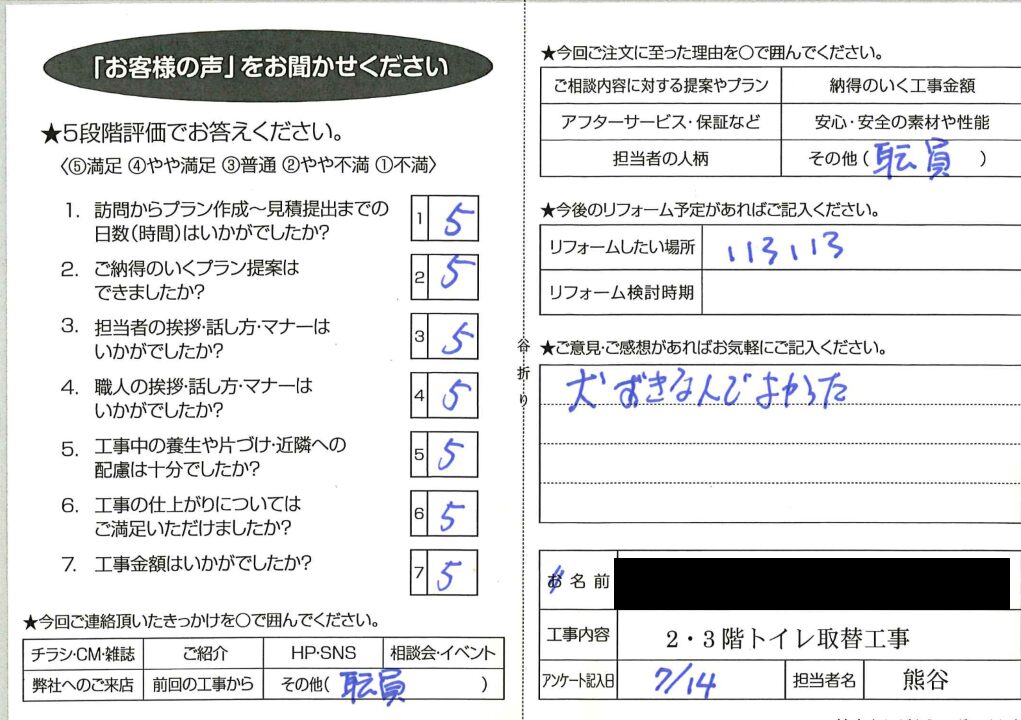 「お客様の声」をお聞かせください
★5段階評価でお答えください。
〈⑤満足 ④やや満足 ③普通 ②やや不満 ①不満〉
1. 訪問からプラン作成～見積提出までの
日数(時間)はいかがでしたか？
1 5
2. ご納得のいくプラン提案は
できましたか？
2 5
3. 担当者の挨拶・話し方・マナーは
いかがでしたか？
3 5
4. 職人の挨拶・話し方・マナーは
いかがでしたか？
4 5
5. 工事中の養生や片づけ・近隣への
配慮は十分でしたか？
5 5
6. 工事の仕上がりについては
ご満足いただけましたか？
6 5
7. 工事金額はいかがでしたか？
7 5
★今回ご連絡頂いたきっかけを○で囲んでください。
チラシ・CM・雑誌 ご紹介 HP・SNS 相談会・イベント
弊社へのご来店 前回の工事から その他( 転員 )
谷折り
★今回ご注文に至った理由を○で囲んでください。
ご相談内容に対する提案やプラン 納得のいく工事金額
アフターサービス・保証など 安心・安全の素材や性能
担当者の人柄 その他( 転員 )
★今後のリフォーム予定があればご記入ください。
リフォームしたい場所 いろいろ
リフォーム検討時期
★ご意見・ご感想があればお気軽にご記入ください。
犬ずきなんでよかった
お名前
工事内容 2・3階トイレ取替工事
アンケート記入日 7/14 担当者名 熊谷